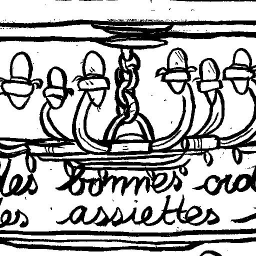 les bonnes
les assiettes